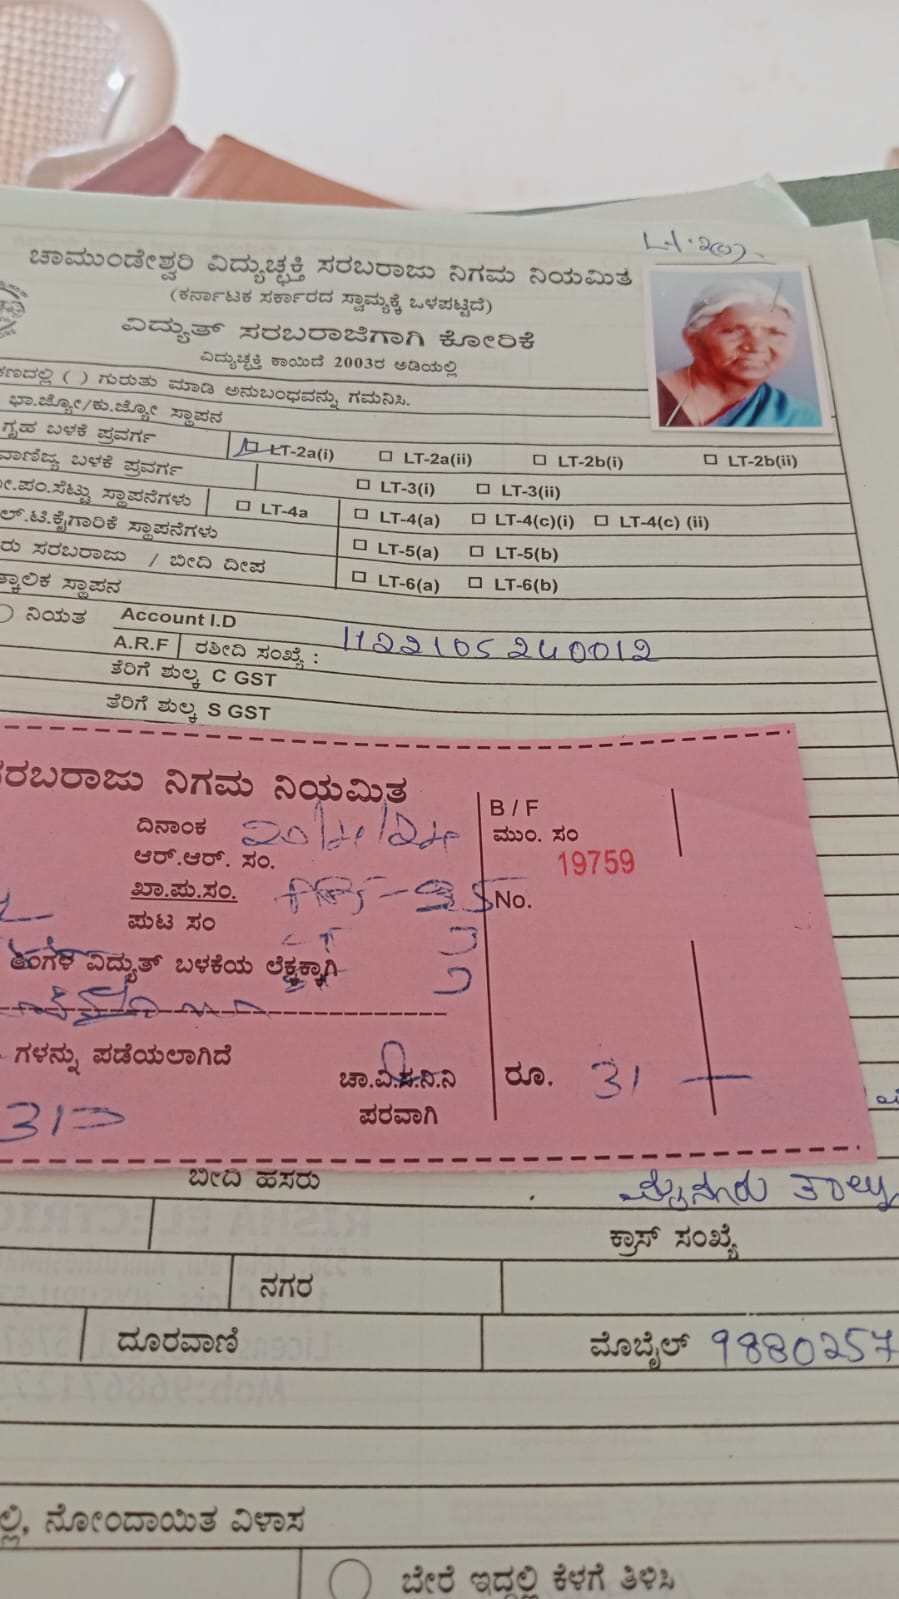 ಚಾಮುಂಡೇಶ್ವರಿ ವಿದ್ಯುಚ್ಛಕ್ತಿ ಸರಬರಾಜು ನಿಗಮ ನಿಯಮಿತ
(ಕರ್ನಾಟಕ ಸರ್ಕಾರದ ಸ್ವಾಮ್ಯಕ್ಕೆ ಒಳಪಟ್ಟಿದೆ)
ವಿದ್ಯುತ್ ಸರಬರಾಜಿಗಾಗಿ ಕೋರಿಕೆ
ವಿದ್ಯುಚ್ಛಕ್ತಿ ಕಾಯಿದೆ 2003ರ ಅಡಿಯಲ್ಲಿ
ಕಣದಲ್ಲಿ ( ) ಗುರುತು ಮಾಡಿ ಅನುಬಂಧವನ್ನು ಗಮನಿಸಿ.
ಭಾ.ಜ್ಯೋ/ಕು.ಜ್ಯೋ ಸ್ಥಾಪನ
ಗೃಹ ಬಳಕೆ ಪ್ರವರ್ಗ LT-2a(i) LT-2a(ii) LT-2b(i) LT-2b(ii)
ವಾಣಿಜ್ಯ ಬಳಕೆ ಪ್ರವರ್ಗ LT-3(i) LT-3(ii)
ೀ.ಪಂ.ಸೆಟ್ಟು ಸ್ಥಾಪನೆಗಳು LT-4a LT-4(a) LT-4(c)(i) LT-4(c) (ii)
ಲ್.ಟಿ.ಕೈಗಾರಿಕೆ ಸ್ಥಾಪನೆಗಳು LT-5(a) LT-5(b)
ರು ಸರಬರಾಜು / ಬೀದಿ ದೀಪ LT-6(a) LT-6(b)
ತ್ಕಾಲಿಕ ಸ್ಥಾಪನ
ನಿಯತ Account I.D
A.R.F ರಶೀದಿ ಸಂಖ್ಯೆ : 1122105240012
ತೆರಿಗೆ ಶುಲ್ಕ C GST
ತೆರಿಗೆ ಶುಲ್ಕ S GST
ಸರಬರಾಜು ನಿಗಮ ನಿಯಮಿತ
ದಿನಾಂಕ 20/4/24
ಆರ್.ಆರ್. ಸಂ.
ಖಾ.ಪು.ಸಂ.
ಪುಟ ಸಂ
ತಿಂಗಳ ವಿದ್ಯುತ್ ಬಳಕೆಯ ಲೆಕ್ಕಕ್ಕಾಗಿ
ಗಳನ್ನು ಪಡೆಯಲಾಗಿದೆ
ಚಾ.ವಿ.ಸ.ನಿ.ನಿ
ಪರವಾಗಿ
B / F
ಮುಂ. ಸಂ
19759
No.
ರೂ. 31
ಬೀದಿ ಹಸರು
ಮೈಸೂರು ತಾಲ್ಲೂ
ಕ್ರಾಸ್ ಸಂಖ್ಯೆ
ನಗರ
ದೂರವಾಣಿ ಮೊಬೈಲ್ 9880257
ಲ್ಲಿ, ನೋಂದಾಯಿತ ವಿಳಾಸ
ಬೇರೆ ಇದ್ದಲ್ಲಿ ಕೆಳಗೆ ತಿಳಿಸಿ